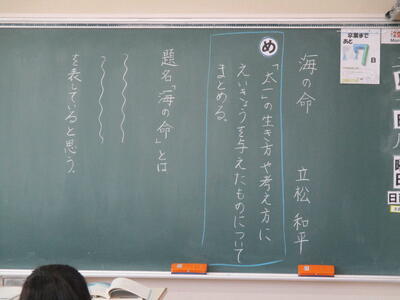 海の命　立松 和平
め
「太一」の生き方や考え方に
えいきょうを与えたものについて
まとめる。
題名「海の命」とは
を表していると思う。
卒業まで
あと
7
日